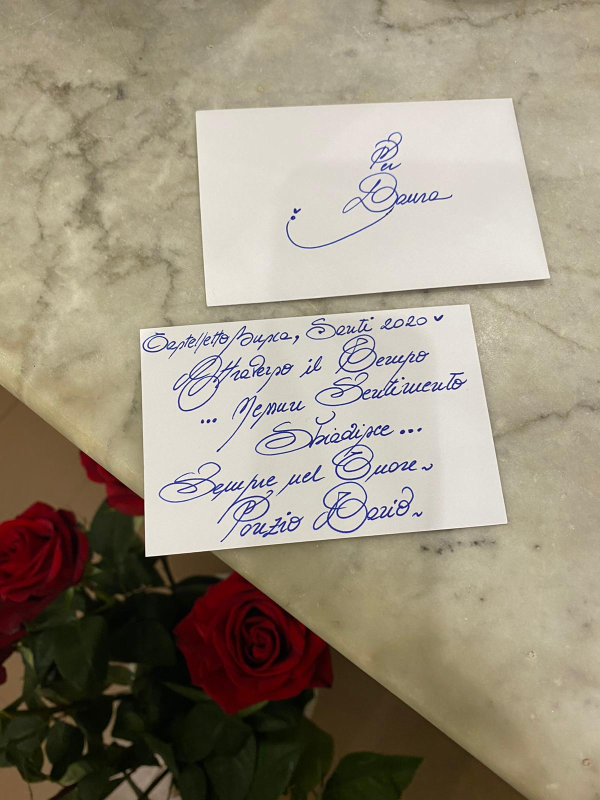 Per
Laura
Castelletto Busca, Santi 2020
Attraverso il Tempo
... Nessun Sentimento
Sbiadisce ...
Sempre nel Cuore~
Ponzio Dario~